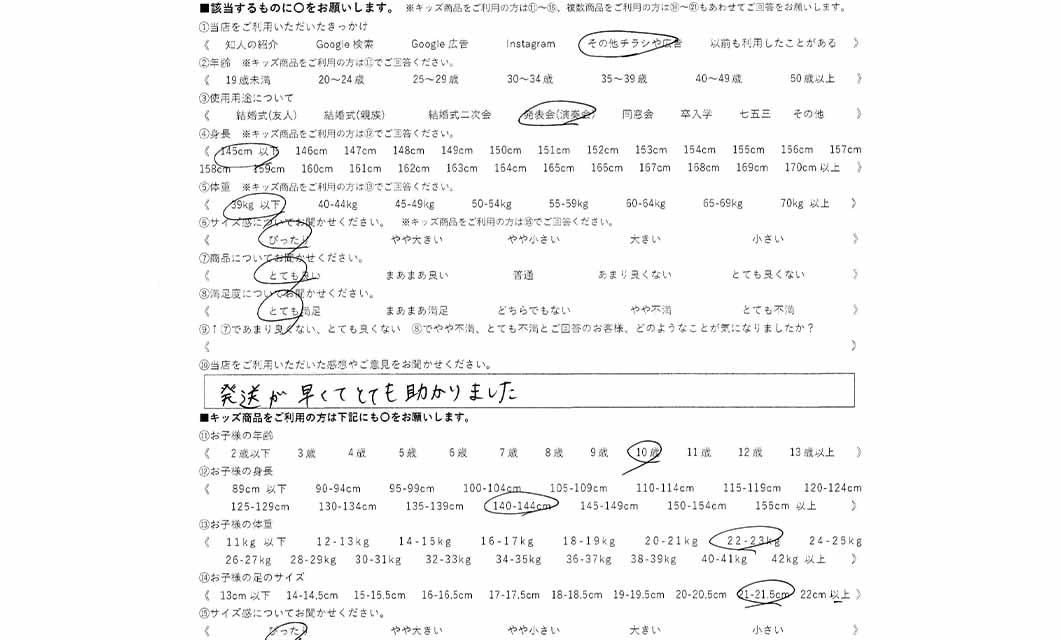 ■該当するものに〇をお願いします。 ※キッズ商品をご利用の方は⑪～⑮、複数商品をご利用の方は⑯～㉑もあわせてご回答をお願いします。
①当店をご利用いただいたきっかけ
《 知人の紹介 Google 検索 Google 広告 Instagram その他チラシや広告 以前も利用したことがある 》
②年齢 ※キッズ商品をご利用の方は⑪でご回答ください。
《 19歳未満 20～24歳 25～29歳 30～34歳 35～39歳 40～49歳 50歳以上 》
③使用用途について
《 結婚式(友人) 結婚式(親族) 結婚式二次会 発表会(演奏会) 同窓会 卒入学 七五三 その他 》
④身長 ※キッズ商品をご利用の方は⑫でご回答ください。
《 145cm 以下 146cm 147cm 148cm 149cm 150cm 151cm 152cm 153cm 154cm 155cm 156cm 157cm
158cm 159cm 160cm 161cm 162cm 163cm 164cm 165cm 166cm 167cm 168cm 169cm 170cm 以上 》
⑤体重 ※キッズ商品をご利用の方は⑬でご回答ください。
《 39kg 以下 40-44kg 45-49kg 50-54kg 55-59kg 60-64kg 65-69kg 70kg 以上 》
⑥サイズ感についてお聞かせください。 ※キッズ商品をご利用の方は⑮でご回答ください。
《 ぴったり やや大きい やや小さい 大きい 小さい 》
⑦商品についてお聞かせください。
《 とても良い まあまあ良い 普通 あまり良くない とても良くない 》
⑧満足度についてお聞かせください。
《 とても満足 まあまあ満足 どちらでもない やや不満 とても不満 》
⑨↑⑦であまり良くない、とても良くない ⑧でやや不満、とても不満とご回答のお客様、どのようなことが気になりましたか？
《 》
⑩当店をご利用いただいた感想やご意見をお聞かせください。
発送が早くてとても助かりました
■キッズ商品をご利用の方は下記にも〇をお願いします。
⑪お子様の年齢
《 2歳以下 3歳 4歳 5歳 6歳 7歳 8歳 9歳 10歳 11歳 12歳 13歳以上 》
⑫お子様の身長
《 89cm 以下 90-94cm 95-99cm 100-104cm 105-109cm 110-114cm 115-119cm 120-124cm
125-129cm 130-134cm 135-139cm 140-144cm 145-149cm 150-154cm 155cm 以上 》
⑬お子様の体重
《 11kg 以下 12-13kg 14-15kg 16-17kg 18-19kg 20-21kg 22-23kg 24-25kg
26-27kg 28-29kg 30-31kg 32-33kg 34-35kg 36-37kg 38-39kg 40-41kg 42kg 以上 》
⑭お子様の足のサイズ
《 13cm 以下 14-14.5cm 15-15.5cm 16-16.5cm 17-17.5cm 18-18.5cm 19-19.5cm 20-20.5cm 21-21.5cm 22cm 以上 》
⑮サイズ感についてお聞かせください。
《 ぴったり やや大きい やや小さい 大きい 小さい 》